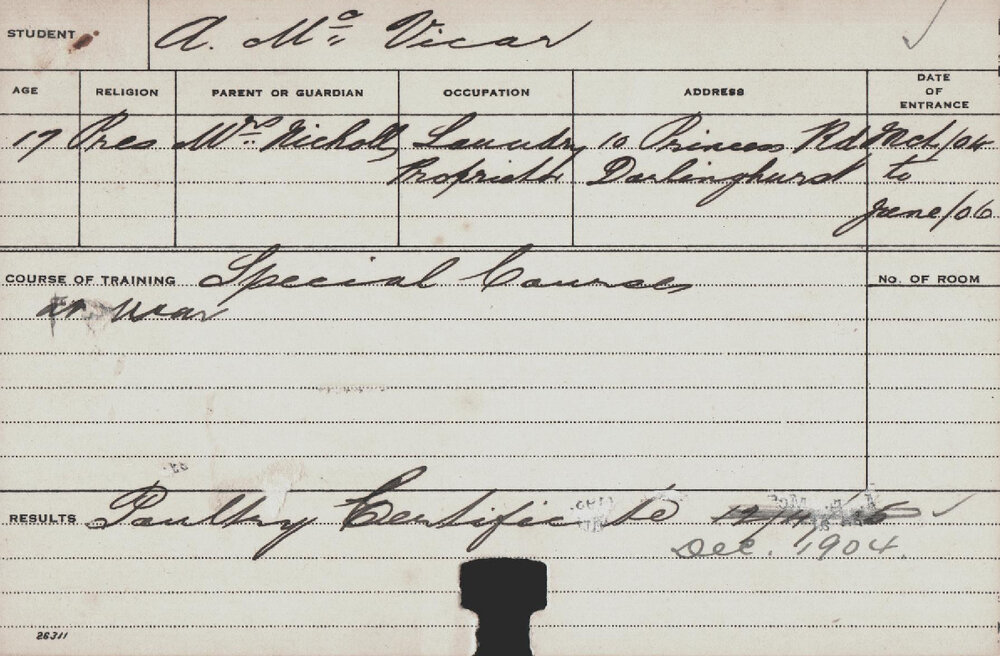 STUDENT A. Mc Vicar
AGE RELIGION PARENT OR GUARDIAN OCCUPATION ADDRESS DATE OF ENTRANCE
17 Pres Mrs Nicholls Laundry 10 Princess Rd Mch/04
Proprietr Darlinghurst to
June/06
COURSE OF TRAINING Special Course No. OF ROOM
at war
RESULTS Poultry Certificate
Dec. 1904.
26311